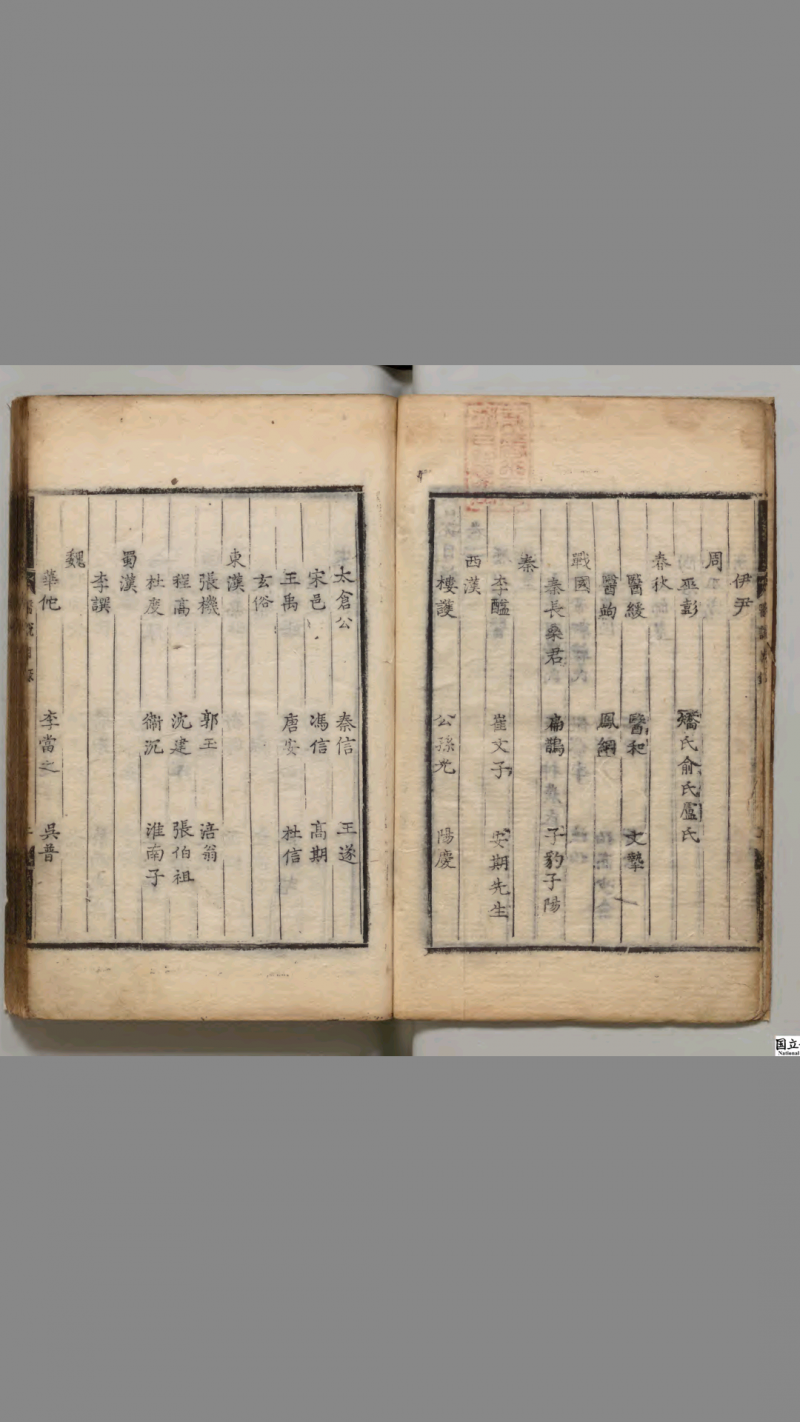 伊尹
周
巫彭 矯氏俞氏盧氏
春秋
醫緩 醫和 文摯
醫竘 鳳綱
戰國
秦長桑君 扁鵲 子豹子陽
秦
李醯 崔文子 安期先生
西漢
樓護 公孫光 陽慶
太倉公 秦信 王遂
宋邑 馮信 高期
王禹 唐安 杜信
玄俗
東漢
張機 郭玉 涪翁
程高 沈建 張伯祖
杜度 衛沉 淮南子
蜀漢
李譔
魏
華佗 李當之 吳普
国立
National